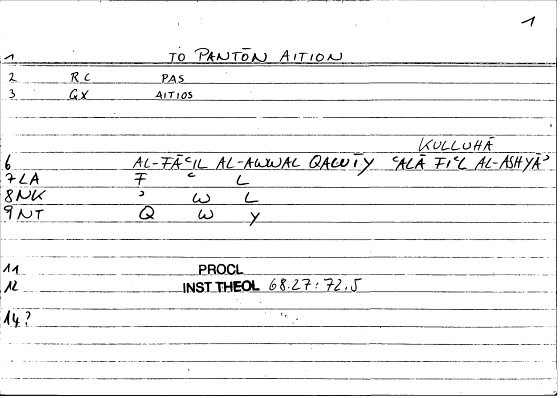 1
1 TO PANTŌN AITION
2 RC PAS
3 GX AITIOS
KULLUHĀ
6 AL-FĀʿIL AL-AWWAL QAWĪY ʿALĀ FIʿL AL-ASHYĀʾ
7 LA F ʿ L
8 NK ʾ W L
9 NT Q W Y
11 PROCL
12 INST THEOL 68.27: 72.5
14 ?